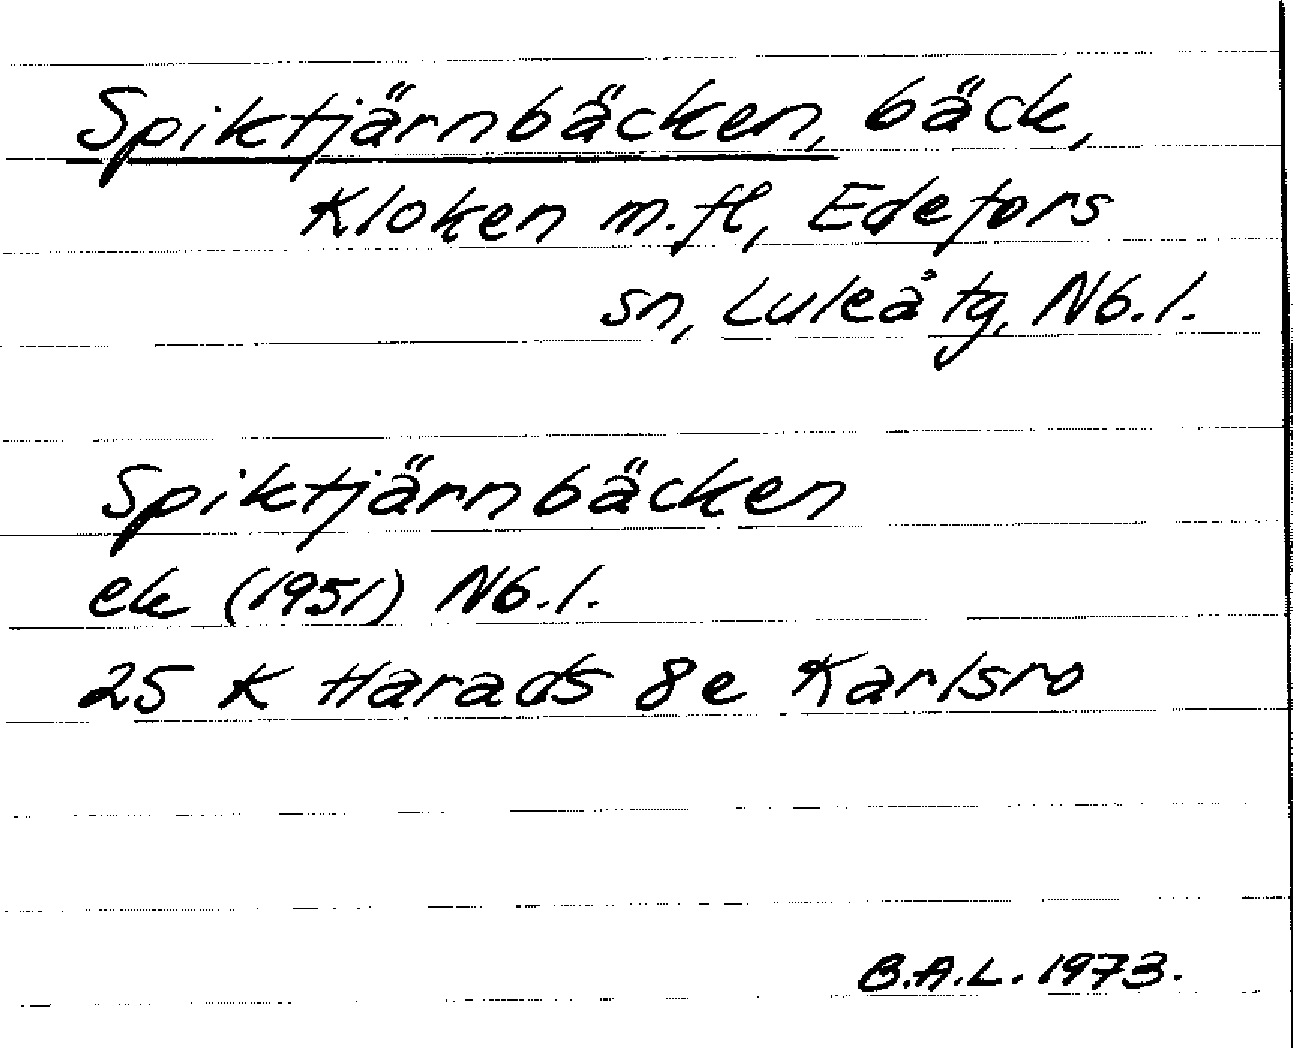 Spiktjärnbäcken, bäck,
Kloken m.fl, Edefors
sn, Luleå tg, Nb. l.
Spiktjärnbäcken
ek (1951) Nb. l.
25 K Harads 8e Karlsro
B.A.L. 1973.